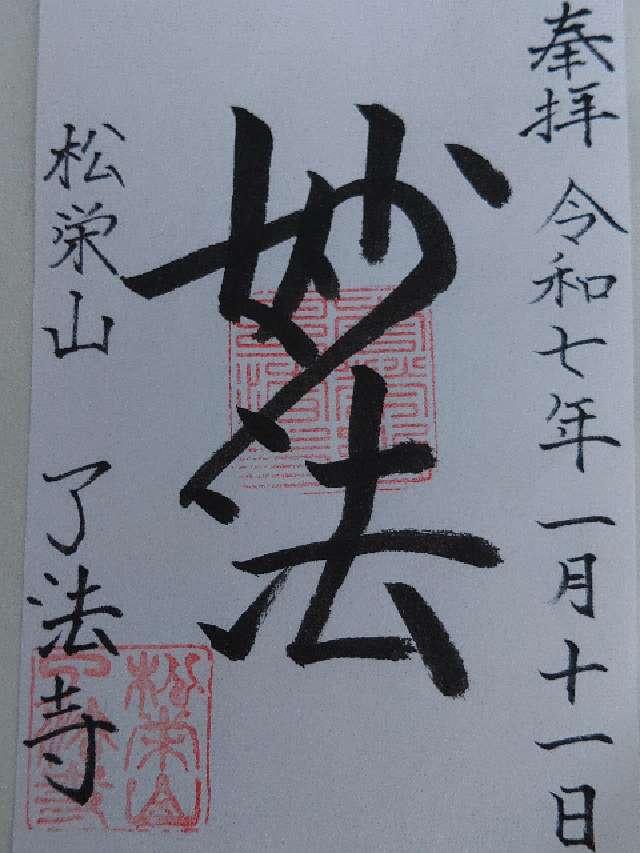 奉拝 令和七年一月十一日
妙法
松栄山 了法寺
松栄山
了法寺